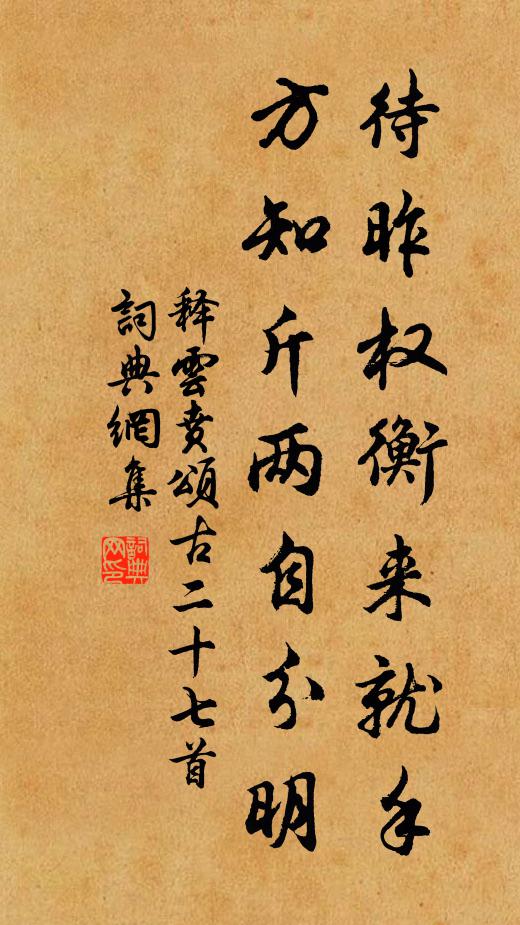 待昨权衡来就手
方知斤两自分明
释雲贲頌古二十七首
詞典網集
詞典网印